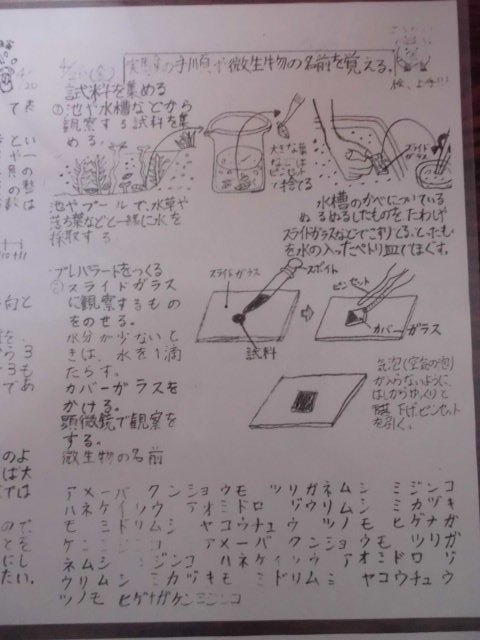 実験の手順や微生物の名前を覚える。
絵、上手!!!
試料を集める
①池や水槽などから
観察する試料を集
める。
池やプールで、水草や
落ち葉などと一緒に水を
採取する
大きな葉
などは
ピンセット
で捨てる
スライド
ガラス
水槽のかべについている
ぬるぬるしたものをたわしや
スライドガラスなどでこすりとる。とったも
を水の入ったペトリ皿でほぐす。
プレパラートをつくる
②スライドガラス
に観察するもの
をのせる。
水分が少ないと
きは、水を1滴
たらす。
カバーガラスを
かける。
顕微鏡で観察を
する。
スライドガラス
スポイト
試料
ピンセット
カバーガラス
気泡(空気の泡)
が入らないように、
はしからゆっくりと
下げ、ピンセット
を引く。
微生物の名前
アメーバ クンショウモ ツリガネムシ ミジンコ
ハネケイソウ アオミドロ ゾウリムシ ミカヅキ
モ ミドリムシ ヤコウチュウ ツノモ ヒゲナガ
ケンミジンコ アメーバ クンショウモ ツリガ
ネムシ ミジンコ ハネケイソウ アオミドロ ゾ
ウリムシ ミカヅキモ ミドリムシ ヤコウチュウ
ツノモ ヒゲナガケンミジンコ